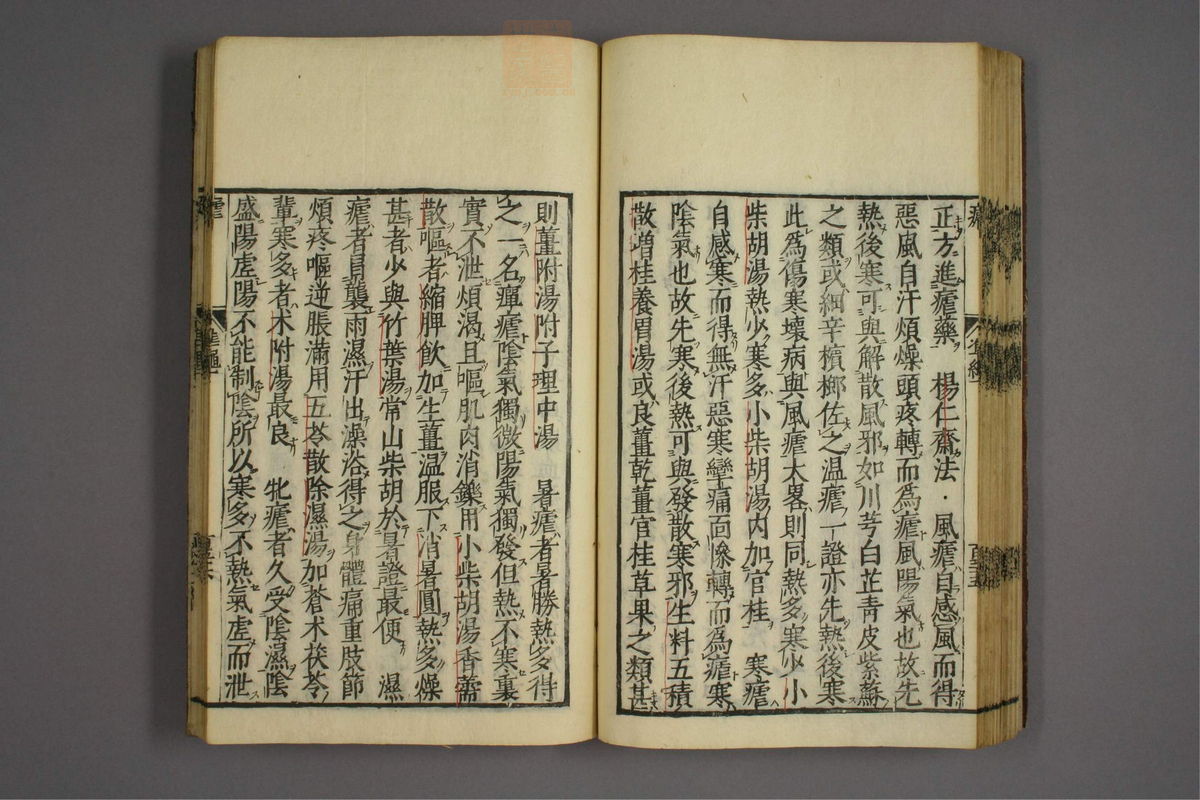 正方進瘧藥 楊仁齋法・風瘧自感風而得
惡風自汗煩燥頭疼轉而為瘧風陽氣也故先
熱後寒可與解散風邪如川芎白芷青皮紫蘇
之類或細辛檳榔佐之温瘧一證亦先熱後寒
此為傷寒壞病與風瘧大畧則同熱多寒少小
柴胡湯熱少寒多小柴胡湯内加官桂 寒瘧
自感寒而得無汗惡寒攣痛面慘轉而為瘧寒
陰氣也故先寒後熱可與發散寒邪生料五積
散増桂養胃湯或良薑乾薑官桂草果之類甚
則薑附湯附子理中湯 暑瘧者暑勝熱多得
之一名癉瘧陰氣獨微陽氣獨發但熱不寒裏
實不泄煩渇且嘔肌肉消鑠用小柴胡湯香薷
散嘔者縮脾飲加生薑温服下消暑圓熱多燥
甚者少與竹葉湯常山柴胡於暑證最便 濕
瘧者冐襲雨濕汗出澡浴得之身體痛重肢節
煩疼嘔逆脹滿用五苓散除濕湯加蒼术茯苓
輩寒多者术附湯最良 牝瘧者久受陰濕陰
盛陽虛陽不能制陰所以寒多不熱氣虛而泄